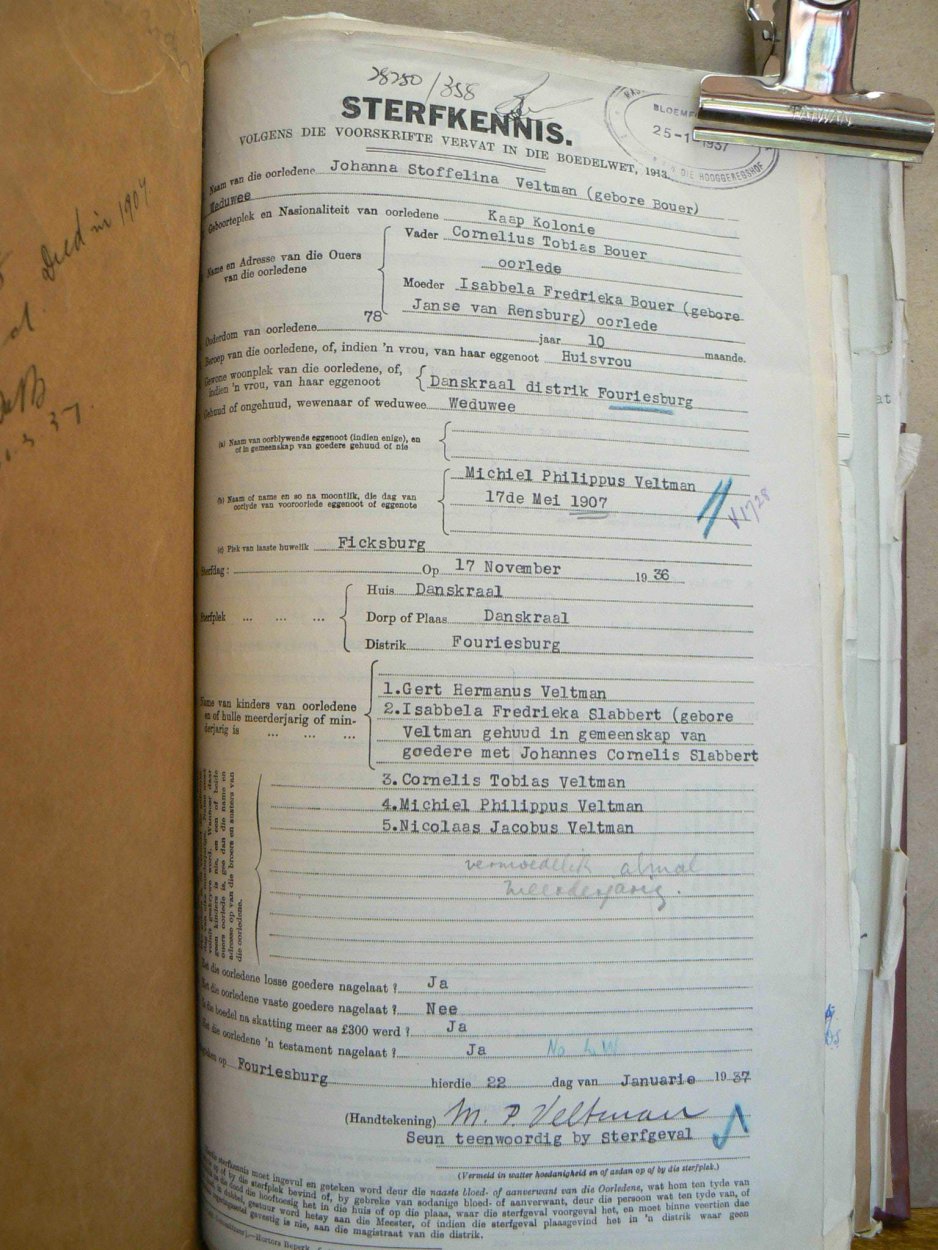 28250/358
STERFKENNIS.
VOLGENS DIE VOORSKRIFTE VERVAT IN DIE BOEDELWET, 1913.
BLOEMF
25-1-1937
DIE HOOGGEREGSHOF
TAIWAN
Died in 1907
Naam van die oorledene Johanna Stoffelina Veltman (gebore Bouer)
Weduwee
Geboorteplek en Nasionaliteit van oorledene Kaap Kolonie
Name en Adresse van die Ouers van die oorledene
Vader Cornelius Tobias Bouer
oorlede
Moeder Isabbela Fredrieka Bouer (gebore
Janse van Rensburg) oorlede
Ouderdom van oorledene 78 jaar 10 maande.
Beroep van die oorledene, of, indien 'n vrou, van haar eggenoot Huisvrou
Gewone woonplek van die oorledene, of, indien 'n vrou, van haar eggenoot
Danskraal distrik Fouriesburg
Gehuud of ongehuud, wewenaar of weduwee Weduwee
(a) Naam van oorblywende eggenoot (indien enige), en of in gemeenskap van goedere gehuud of nie
(b) Naam of name en so na moontlik, die dag van oorlyde van vooroorlede eggenoot of eggenote
Michiel Philippus Veltman
17de Mei 1907
V1728
(c) Plek van laaste huwelik Ficksburg
Sterfdag: Op 17 November 1936
Sterfplek ... ... ...
Huis Danskraal
Dorp of Plaas Danskraal
Distrik Fouriesburg
Name van kinders van oorledene en of hulle meerderjarig of minderjarig is ... ... ...
1.Gert Hermanus Veltman
2.Isabbela Fredrieka Slabbert (gebore
Veltman gehuud in gemeenskap van
goedere met Johannes Cornelis Slabbert
3.Cornelis Tobias Veltman
4.Michiel Philippus Veltman
5.Nicolaas Jacobus Veltman
vermoedelik almal
meerderjarig.
geen kinders is nie, en een of beide
ouers oorlede is, gee dan die name en
adresse op van die broers en susters van
die oorledene.
Het die oorledene losse goedere nagelaat? Ja
Het die oorledene vaste goedere nagelaat? Nee
Is die boedel na skatting meer as £300 werd? Ja
Het die oorledene 'n testament nagelaat? Ja
Fouriesburg hierdie 22 dag van Januarie 1937
(Handtekening) M. P. Veltman
Seun teenwoordig by Sterfgeval
(Vermeld in watter hoedanigheid en of andan op of by die sterfplek.)
sterfkennis moet ingevul en geteken word deur die naaste bloed- of aanverwant van die Oorledene, wat hom ten tyde van
of by die sterfplek bevind of, by gebreke van sodanige bloed- of aanverwant, deur die persoon wat ten tyde van, of
die dood die hooftoesig het in die huis of op die plaas, waar die sterfgeval voorgeval het, en moet binne veertien dae
gestuur word hetsy aan die Meester, of indien die sterfgeval plaasgevind het in 'n distrik waar geen
gevestig is nie, aan die magistraat van die distrik.